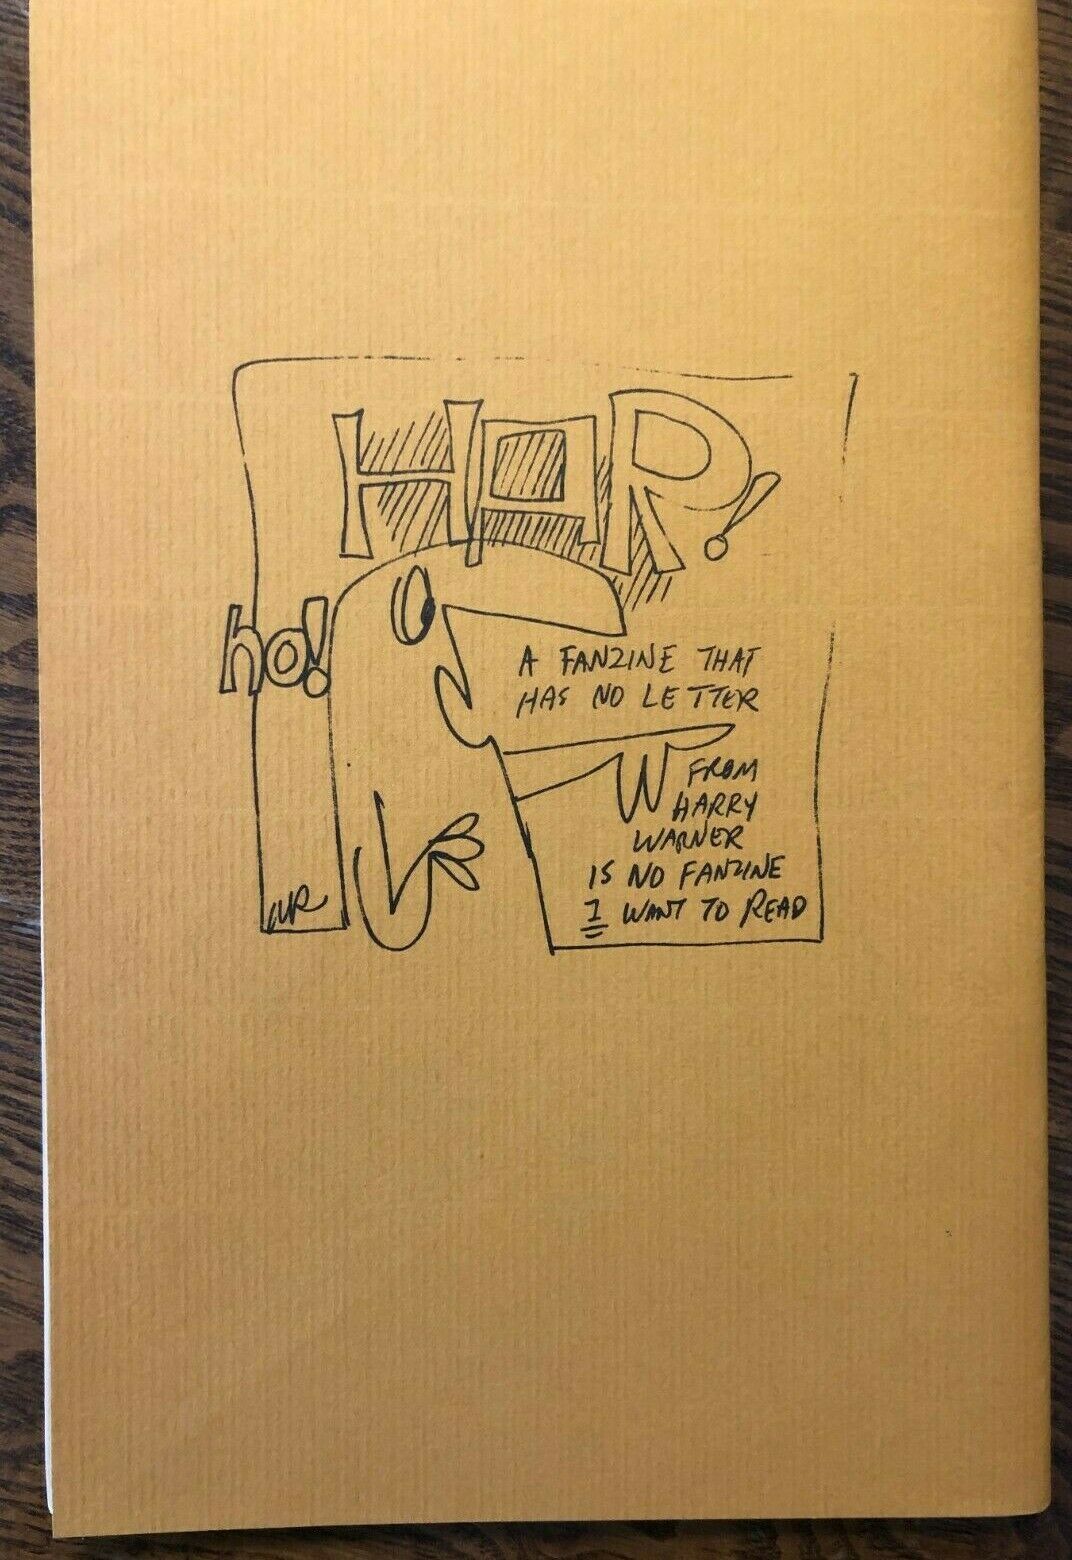 HAR!
ho!
A FANZINE THAT
HAS NO LETTER
FROM
HARRY
WARNER
IS NO FANZINE
I WANT TO READ
WR